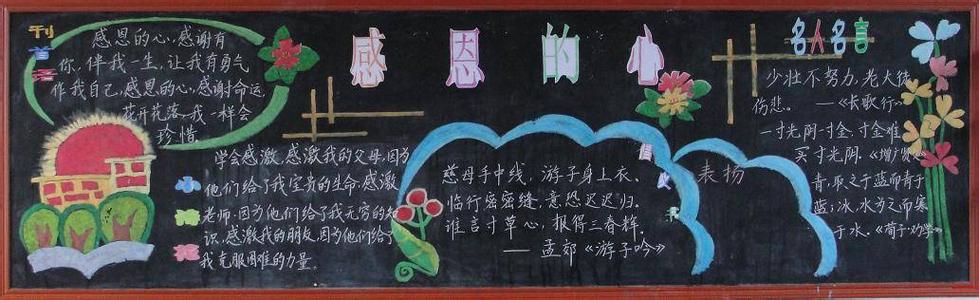 刊首语
感恩的心,感谢有
你,伴我一生,让我有勇气
作我自己,感恩的心,感谢命运,
花开花落,我一样会
珍惜。
感恩的心
学会感激,感激我的父母,因为
他们给了我宝贵的生命,感激
老师,因为他们给了我无穷的知
识,感激我的朋友,因为他们给了
我克服困难的力量。
慈母手中线,游子身上衣。
临行密密缝,意恐迟迟归。
谁言寸草心,报得三春辉。
——孟郊《游子吟》
表扬
名人名言
少壮不努力,老大徒
伤悲。——《长歌行》
一寸光阴一寸金,寸金难
买寸光阴。《增广贤文》
青,取之于蓝而青于
蓝;冰,水为之而寒
于水。《荀子·劝学》